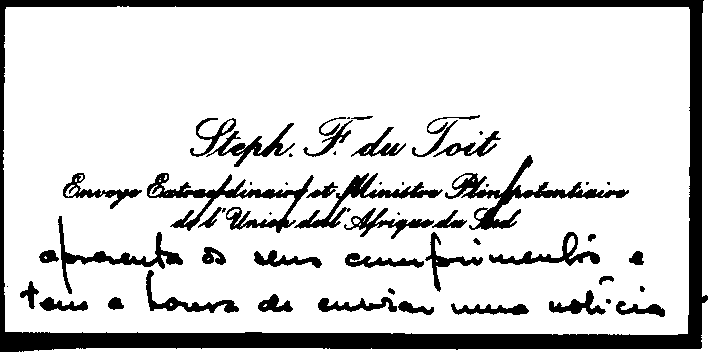 Steph. F. du Toit
Envoyé Extraordinaire et Ministre Plénipotentiaire
de l'Union de l'Afrique du Sud
apresenta os seus cumprimentos e
tem a honra de enviar uma notícia